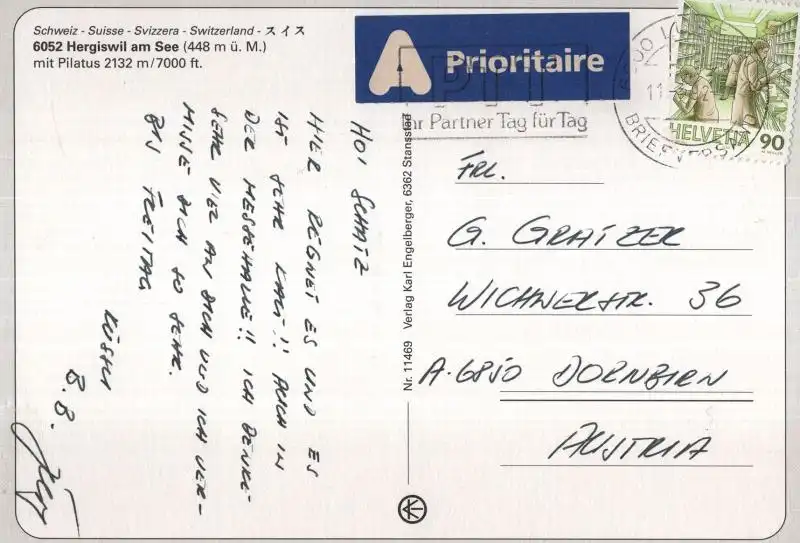 Schweiz - Suisse - Svizzera - Switzerland - スイス
6052 Hergiswil am See (448 m ü. M.)
mit Pilatus 2132 m/7000 ft.
A Prioritaire
PTT
Ihr Partner Tag für Tag
BRIEFVERSAND
HELVETIA 90
HOI SCHATZ
HIER REGNET ES UND ES
IST SEHR KALT!! AUCH IN
DER MESSEHALLE!! ICH DENKE
SEHR VIEL AN DICH UND ICH VER-
MISSE DICH SO SEHR.
BIS FREITAG
B.B.
Nr. 11469 Verlag Karl Engelberger, 6362 Stansstad
FRL.
G. GRATZER
WICHNERSTR. 36
A-6850 DORNBIRN
AUSTRIA